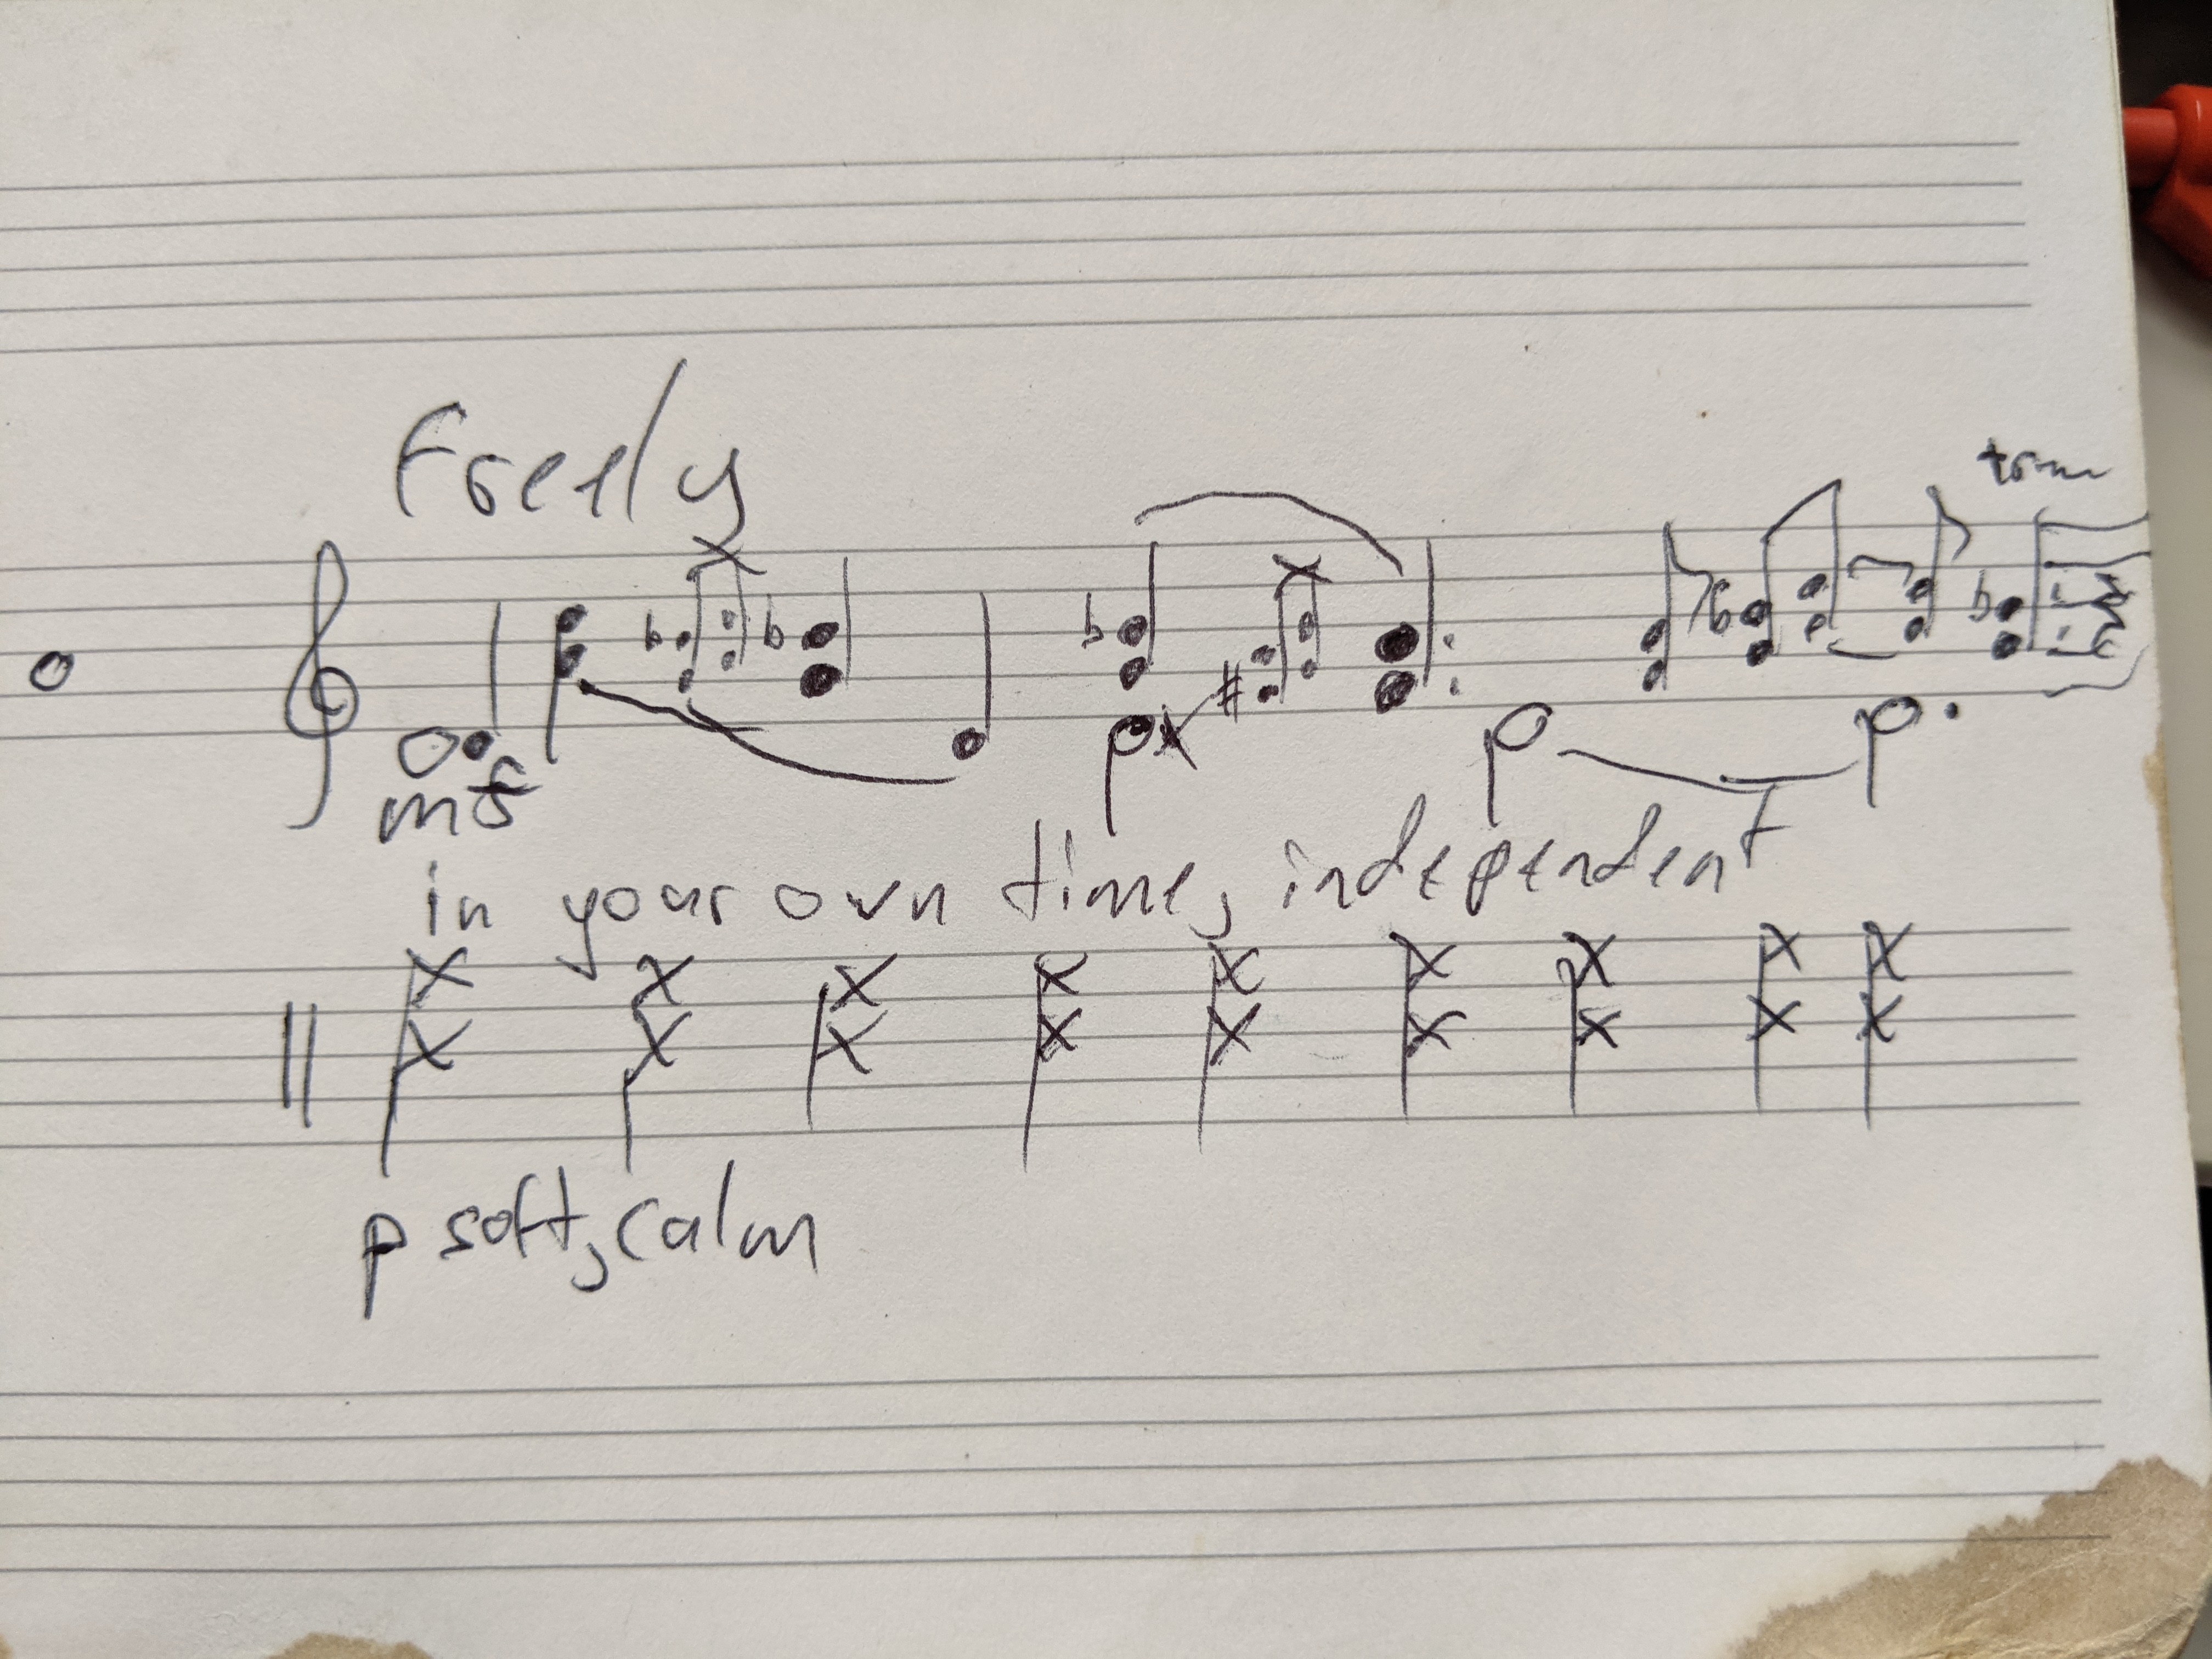 Freely
tr
mf
in your own time, independent
p soft, calm